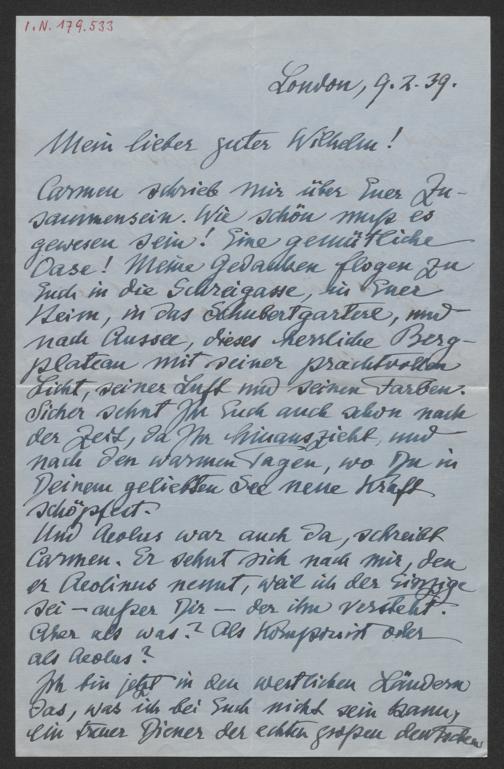 I.N. 179.533
London, 9.2.39.
Mein lieber guter Wilhelm!
Carmen schrieb mir über Euer Zu-
sammensein. Wie schön muß es
gewesen sein! Eine gemütliche
Oase! Meine Gedanken flogen zu
Euch in die Schreigasse, in Euer
Heim, in das Schubertgarterl, und
nach Aussee, dieses herrliche Berg-
plateau mit seiner prachtvollen
Licht, seiner Luft und seinen Farben.
Sicher sehnt Ihr Euch auch schon nach
der Zeit, da Ihr hinauszieht, und
nach den warmen Tagen, wo Du in
Deinem geliebten See neue Kraft
schöpfest.
Und Aeolus war auch da, schreibt
Carmen. Er sehnt sich nach mir, den
er Aeolinus nennt, weil ich der Einzige
sei – außer Dir – der ihn versteht.
Aber als was? Als Komponist oder
als Aeolus?
Ich bin jetzt in den westlichen Ländern
das, was ich bei Euch nicht sein kann,
ein treuer Diener der echten großen deutschen